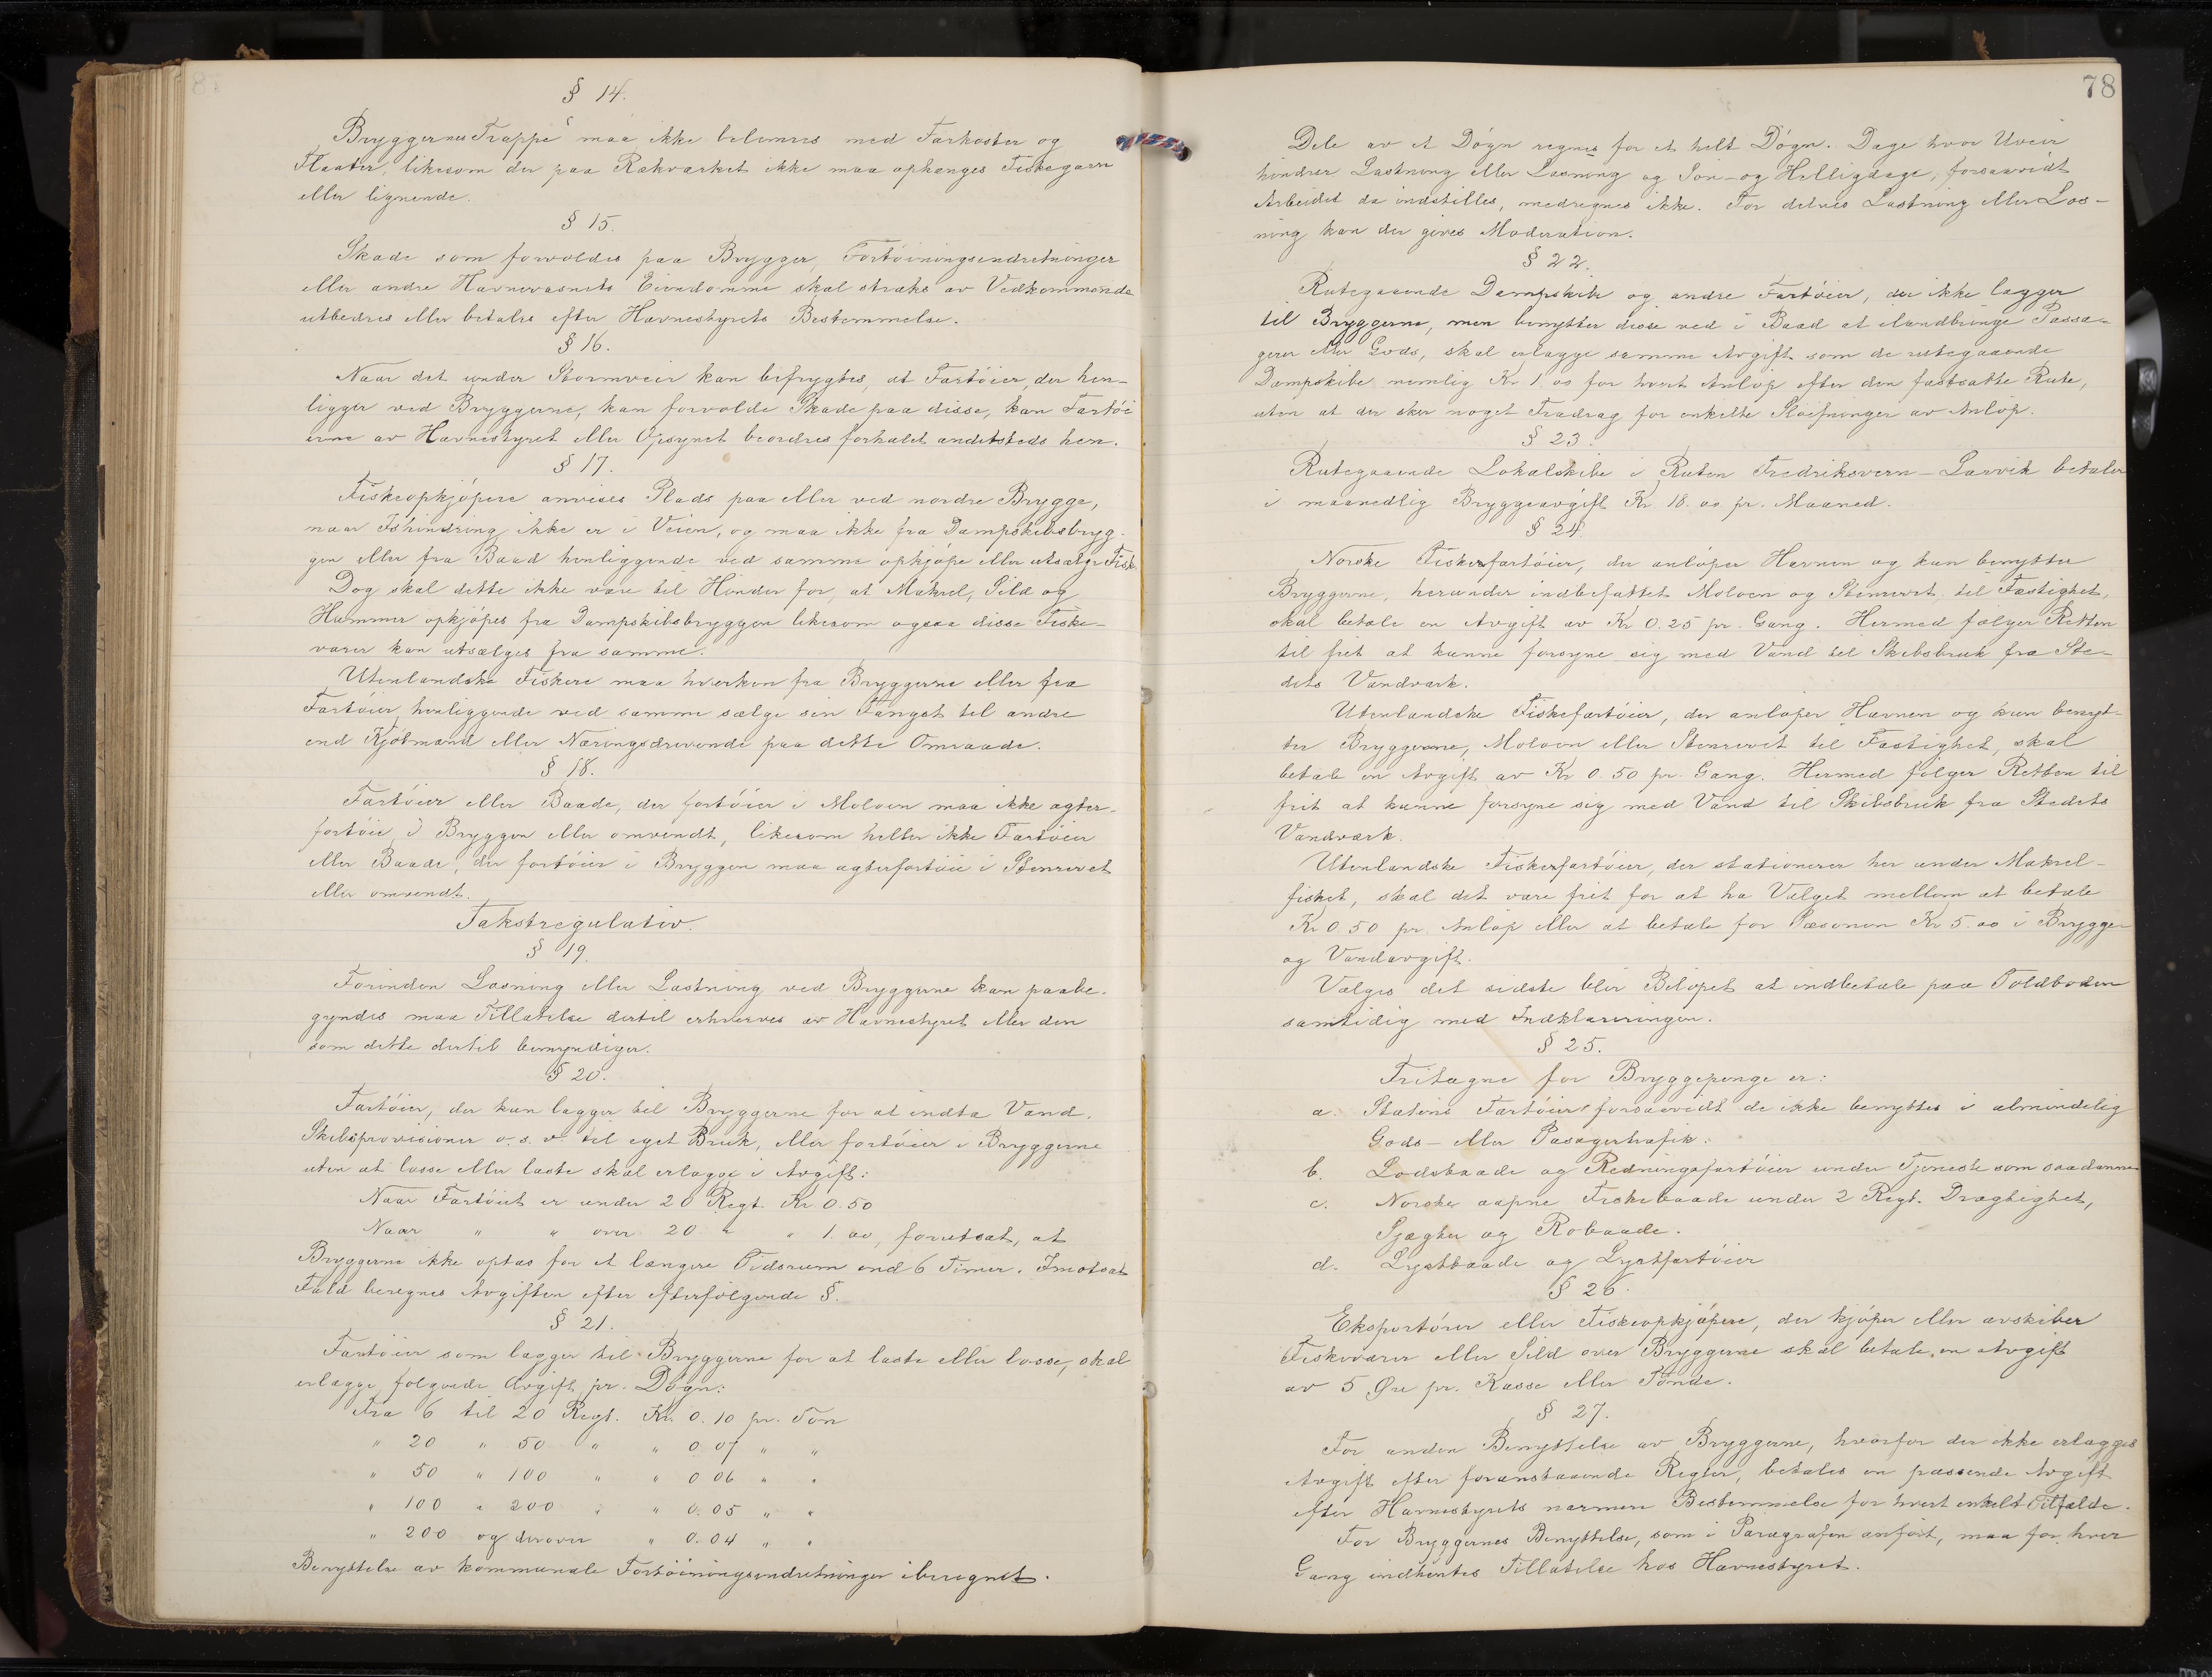 § 14.
Bryggernes Trappe maa ikke belemres med Farkoster og
Flaater, likesom der paa Rækværket ikke maa ophænges Fiskegarn
eller lignende.
§ 15.
Skade som forvoldes paa Brygger, Fortöiningsindretninger
eller andre Havnevæsnets Eiendomme skal straks av Vedkommende
utbedres eller betales efter Havnestyrets Bestemmelse.
§ 16.
Naar det under Stormveir kan befrygtes, at Fartöier, der hen-
ligger ved Bryggerne, kan forvolde Skade paa disse, kan Fartöi
erne av Havnestyret eller Opsynet beordres forhalet andetsteds hen.
§ 17.
Fiskeopkjöpere anvises Plads paa eller ved nordre Brygge,
naar Ishindring ikke er i Veien, og maa ikke fra Dampskibsbryg-
gen eller fra Baad henliggende ved samme opkjöpe eller utsælge Fisk.
Dog skal dette ikke være til Hinder for, at Makrel, Sild og
Hummer opkjöpes fra Dampskibsbryggen likesom ogsaa disse Fiske-
varer kan utsælges fra samme.
Utenlandske Fiskere maa hverken fra Bryggerne eller fra
Fartöier henliggende ved samme sælge sin Fangst til andre
end Kjöbmænd eller Næringsdrivende paa dette Omraade.
§ 18.
Fartöier eller Baade, der fortöier i Moloen maa ikke agter-
fortöie i Bryggen eller omvendt, likesom heller ikke Fartöier
eller Baade, der fortöier i Bryggen maa agterfortöie i Stenrevet
eller omvendt.
Takstregulativ.
§ 19.
Förinden Losning eller Lastning ved Bryggerne kan paabe-
gyndes maa Tillatelse dertil erhverves av Havnestyret eller den
som dette dertil bemyndiger.
§ 20.
Fartöier, der kun lægger til Bryggerne for at indta Vand,
Skibsprovisioner o. s. v. til eget Bruk, eller fortöier i Bryggerne
uten at losse eller laste skal erlægge i Avgift:
Naar Fartöiet er under 20 Regt. Kr 0.50
Naar " " over 20 " " 1.00, forutsat, at
Bryggerne ikke optas for et længere Tidsrum end 6 Timer. I motsat
Fald beregnes Avgiften efter efterfölgende §.
§ 21.
Fartöier som lægger til Bryggerne for at laste eller losse, skal
erlægge fölgende Avgift pr. Dögn:
Fra 6 til 20 Regt. Kr. 0.10 pr. Ton
" 20 " 50 " " 0.07 " "
" 50 " 100 " " 0.06 " "
" 100 " 200 " " 0.05 " "
" 200 og derover " 0.04 " "
Benyttelse av kommunale Fortöiningsindretninger iberegnet.
78
Dele av et Dögn regnes for et helt Dögn. Dage hvor Uveir
hindrer Lastning eller Losning og Sön- og Helligdage, forsaavidt
Arbeidet da indstilles, medregnes ikke. For delvis Lastning eller Los-
ning kan der gives Moderation.
§ 22.
Rutegaaende Dampskibe og andre Fartöier, der ikke lægger
til Bryggerne, men benytter disse ved i Baad at ilandbringe Passa-
gerer eller Gods, skal erlægge samme Avgift som de rutegaaende
Dampskibe nemlig Kr 1.00 for hvert Anlöp efter den fastsatte Rute,
uten at der sker noget Fradrag for enkelte Slöifninger av Anlöp.
§ 23.
Rutegaaende Lokalskibe i Ruten Fredriksvern-Larvik betaler
i maanedlig Bryggeavgift Kr 18.00 pr. Maaned.
§ 24.
Norske Fiskerfartöier, der anlöper Havnen og kun benytter
Bryggerne, herunder indbefattet Moloen og Stenrevet, til Fæstighet,
skal betale en Avgift av Kr 0.25 pr. Gang. Hermed fölger Retten
til frit at kunne forsyne sig med Vand til Skibsbruk fra Ste-
dets Vandværk.
Utenlandske Fiskefartöier, der anlöper Havnen og kun benyt-
ter Bryggerne, Moloen eller Stenrevet til Fæstighet, skal
betale en Avgift av Kr 0.50 pr. Gang. Hermed fölger Retten til
frit at kunne forsyne sig med Vand til Skibsbruk fra Stedets
Vandværk.
Utenlandske Fiskerfartöier, der stationerer her under Makrel-
fisket, skal det være frit for at ha Valget mellem at betale
Kr 0.50 pr. Anlöp eller at betale for Sæsonen Kr 5.00 i Brygge-
og Vandavgift.
Vælges det sidste blir Belöpet at indbetale paa Toldboden
samtidig med Indklareringen.
§ 25.
Fritagne for Bryggepenge er:
a. Statens Fartöier forsaavidt de ikke benyttes i almindelig
Gods- eller Passagertrafik.
b. Lodsbaade og Redningsfartöier under Tjeneste som saadanne
c. Norske aapne Fiskebaade under 2 Regt. Drægtighet,
Sjægter og Robaade.
d. Lystbaade og Lystfartöier
§ 26.
Eksportörer eller Fiskeopkjöpere, der kjöper eller avskiber
Fiskevarer eller Sild over Bryggerne skal betale en Avgift
av 5 Øre pr. Kasse eller Tönde.
§ 27.
For anden Benyttelse av Bryggerne, hvorfor der ikke erlægges
Avgift efter foranstaaende Regler, betales en passende Avgift
efter Havnestyrets nærmere Bestemmelse for hvert enkelt Tilfælde.
For Bryggernes Benyttelse, som i Paragrafen anfört, maa for hver
Gang indhentes Tillatelse hos Havnestyret.